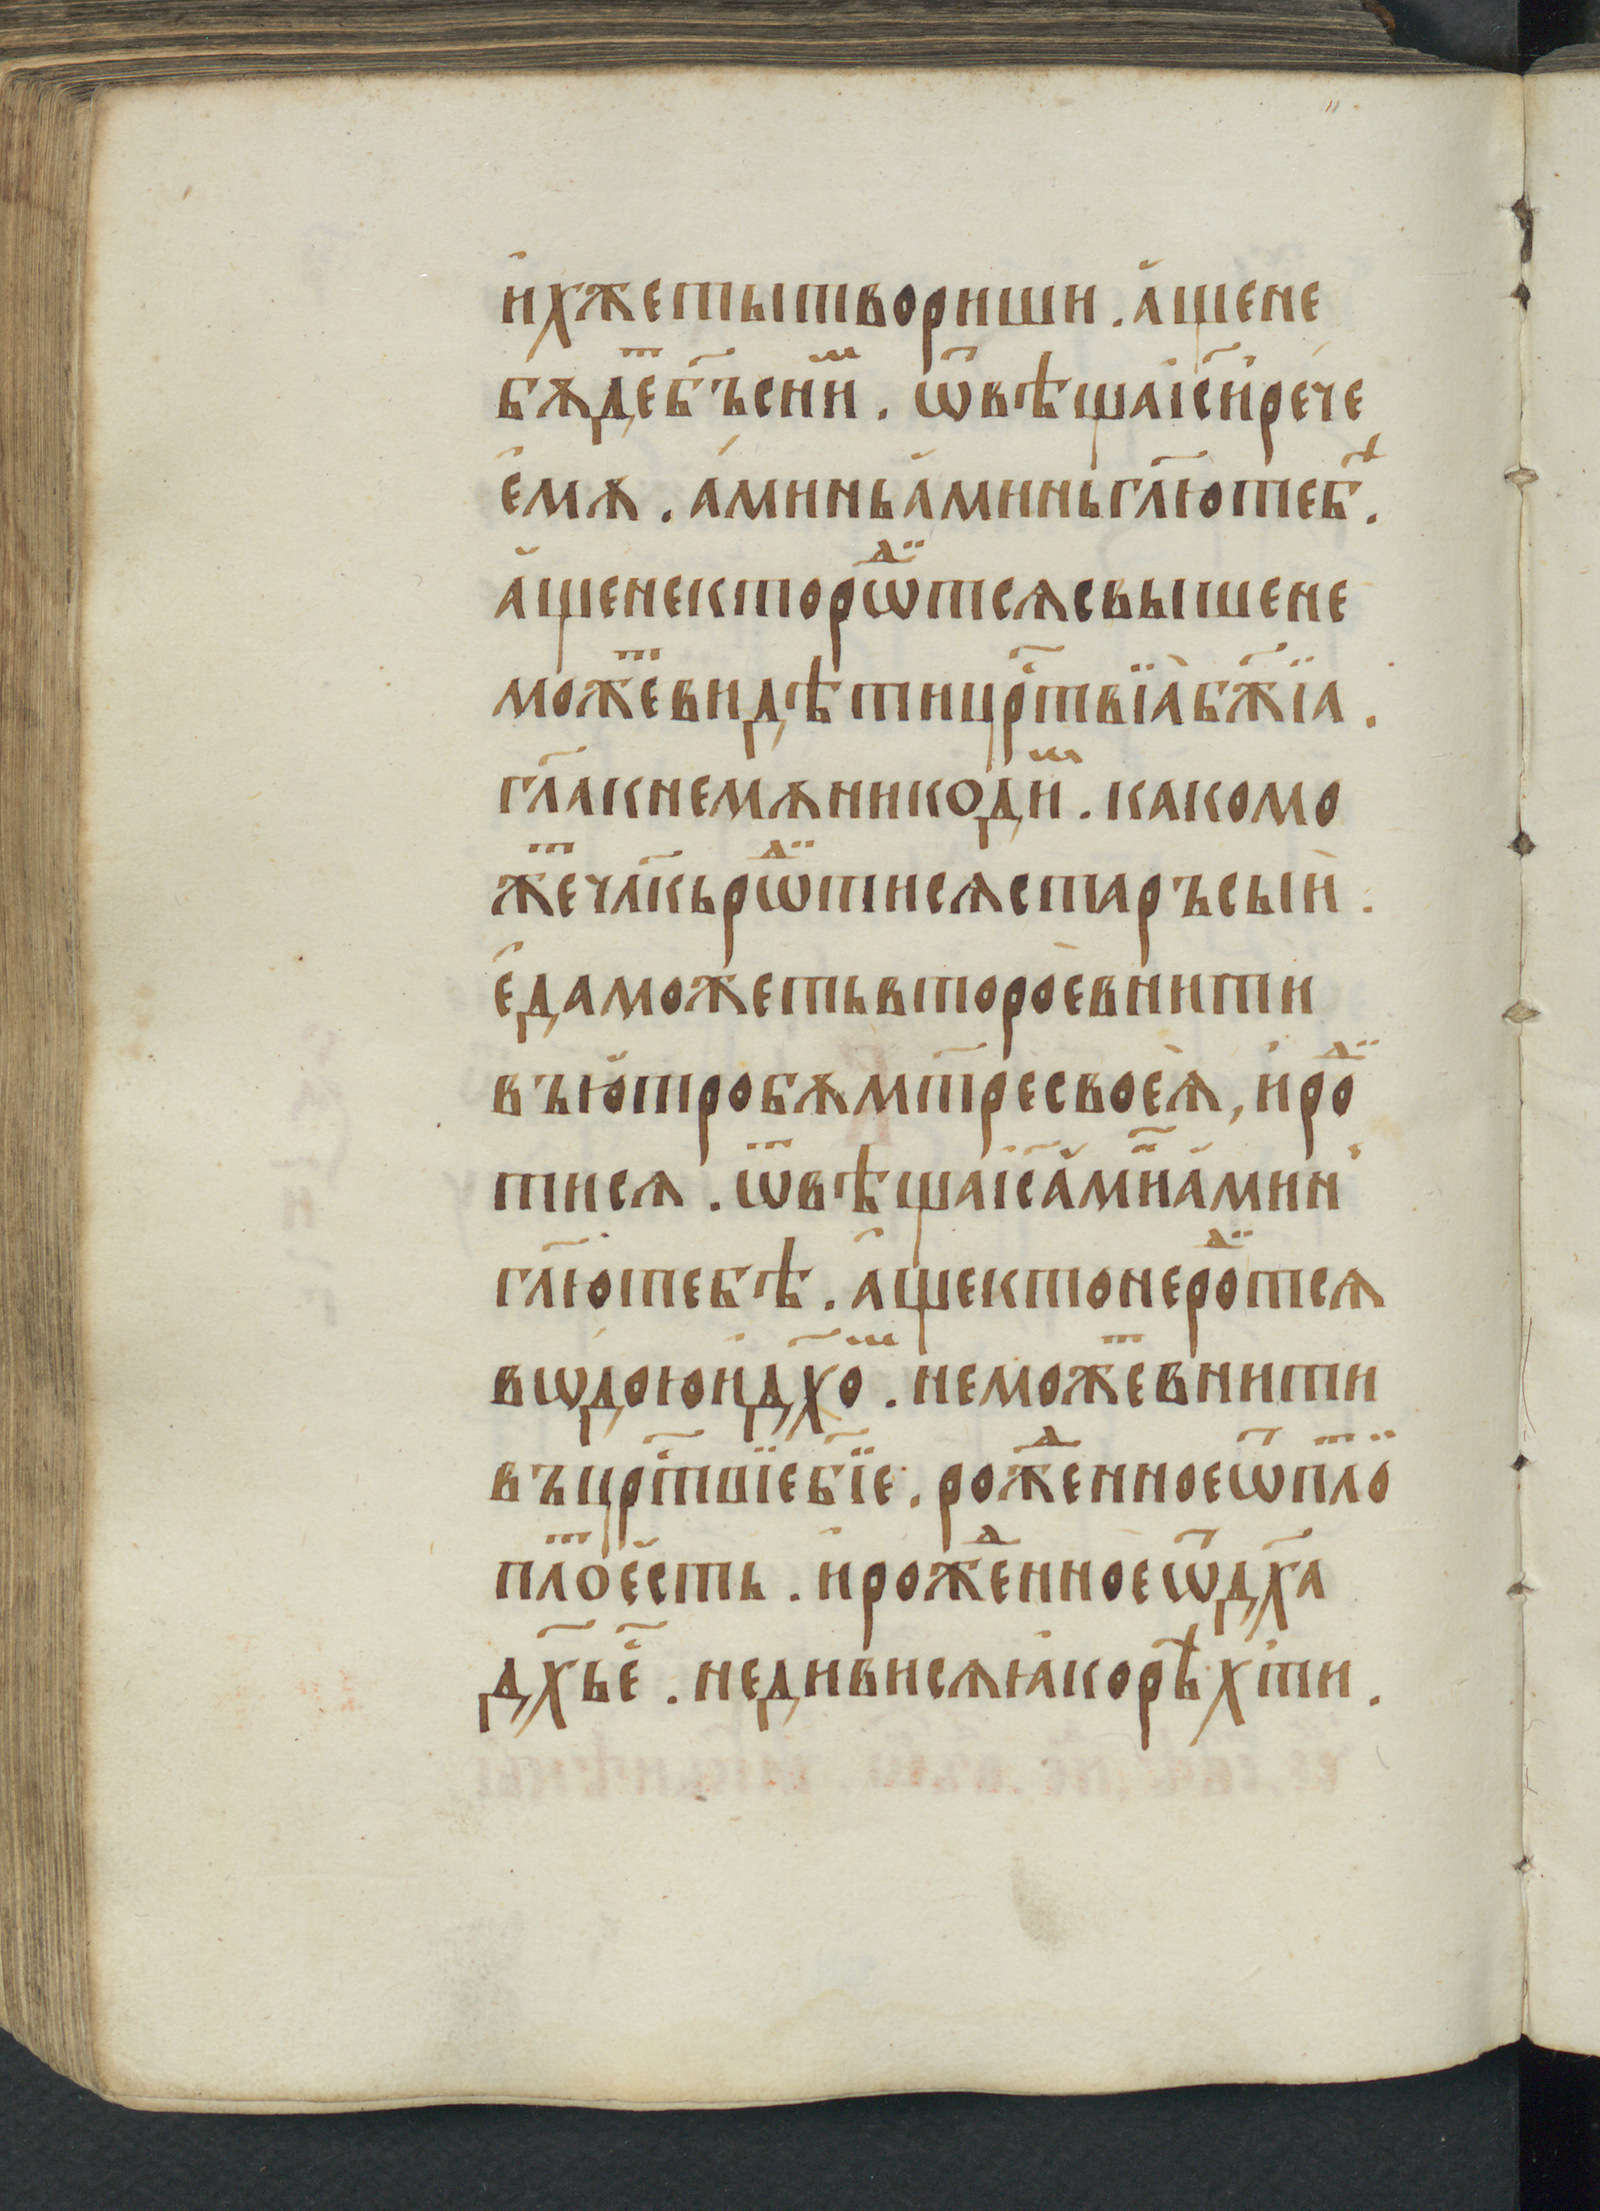 и҆хжетытвориши . а҆щене
бѫдеⷮб҃ъсниⷨ . ѿвѣщаі҆с҃и҆рече
є҆мѫ . а҆миньа҆миньгл҃ютебⷷ .
а҆щенекторѡⷣтсѧсвышене
можеⷮвидѣтицр҃твїабж҃їа .
гл҃акнемѫникодиⷨ . какомо
жеⷮчл҃кьрѡⷣтисѧстаръсыи .
є҆даможетьвтороевнити
въютробѫмт҃ресвоеѧ , и҆роⷣ
тисѧ . ѿвѣщаі҆с҃а҆ми҃а҆мин
гл҃ютебѣ . а҆щектонероⷣтсѧ
вѡдоюидх҃оⷨ . неможеⷮвнити
въцр҃твїебї҃е . роⷣженноеѿплоⷮ
плоⷮє҆сть . и҆роⷣженноеѿдх҃а
дх҃ье҃ . недивисѧꙗкорѣхⷮти .